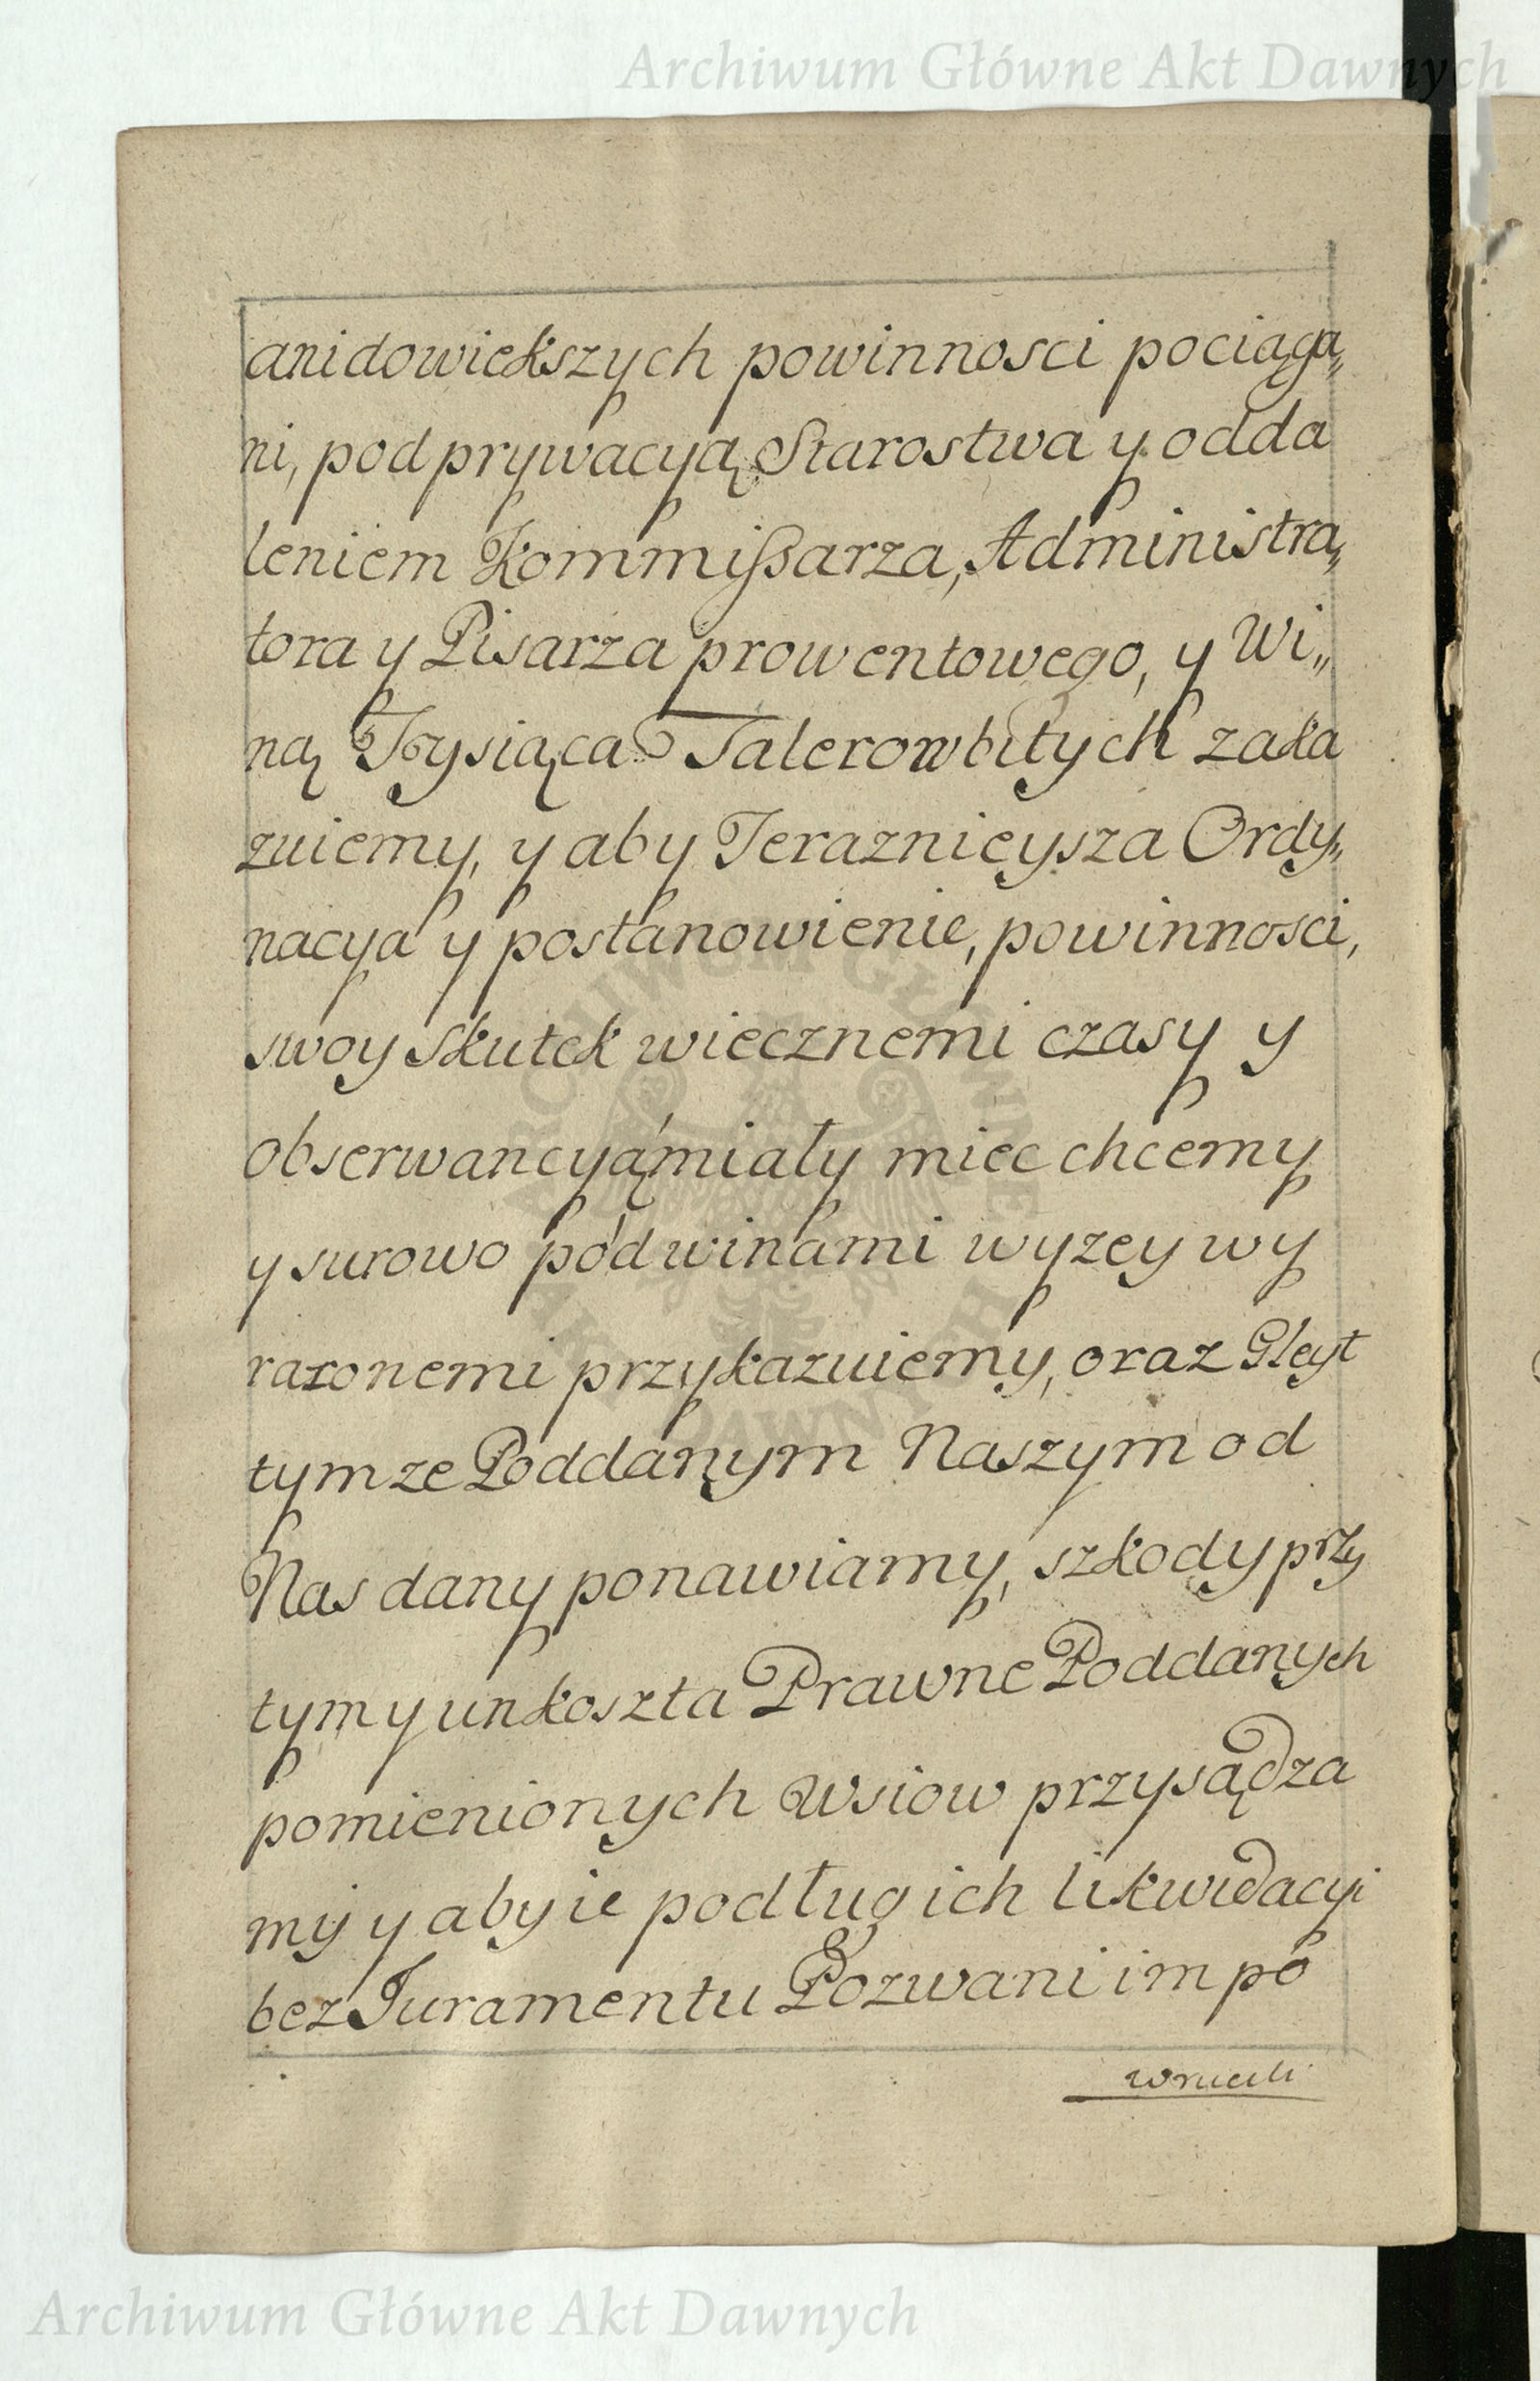 Archiwum Główne Akt Dawnych
ani do wiekszych powinnosci pociąga„
ni, pod prywacyą Starostwa y odda
leniem Kommißarza, Administra„
tora y Pisarza prowentowego, y Wi„
ną Tysiąca Talerow bitych zaka
zuiemy, y aby Teraznieysza Ordy„
nacya y postanowienie, powinnosci,
swoy Skutek wiecznemi czasy y
obserwancyą miały miec chcemy
y surowo pod winami wyzey wy
razonemi przykazuiemy, oraz Gleyt
tymze Poddanym Naszym od
Nas dany ponawiamy, szkody przy
tym y unkoszta Prawne Poddanych
pomienionych Wsiow przysądza
my y aby ie podług ich likwidacyi
bez Juramentu Pozwani im po
ARCHIWUM GŁÓWNE AKT DAWNYCH
Archiwum Główne Akt Dawnych